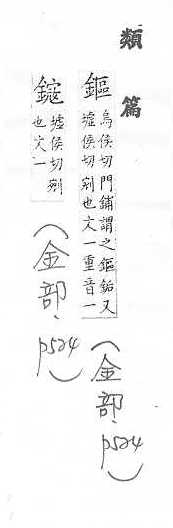 類篇
鏂
烏侯切門鋪謂之鏂銗又
墟侯切剜也文一重音一
(金部、p524)
墟侯切剜
也文一
(金部、p524)